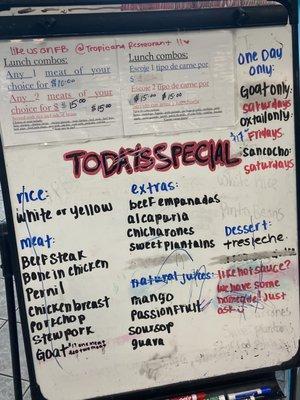 like us on FB @Tropicana Restaurant !!
Lunch combos:
Any 1 meat of your
choice for $10.00
Any 2 meats of your
choice for $15.00 $15.00
Lunch combos:
Escoje 1 tipo de carne por
$
Escoje 2 tipo de carne por
$15.00 $15.00
one Day
only:
Goat only:
saturdays
oxtail only:
Fridays
sancocho:
saturdays
TODAY'S SPECIAL
rice:
white or yellow
meat:
Beef steak
Bone in chicken
Pernil
chicken breast
porkchop
stew pork
Goat
extras:
beef empanadas
alcapuria
chicharones
sweet plantains
natural juices:
mango
Passion fruit
soursop
guava
Dessert:
tresleche
like hot sauce?
we have some
homemade! Just
ask :)